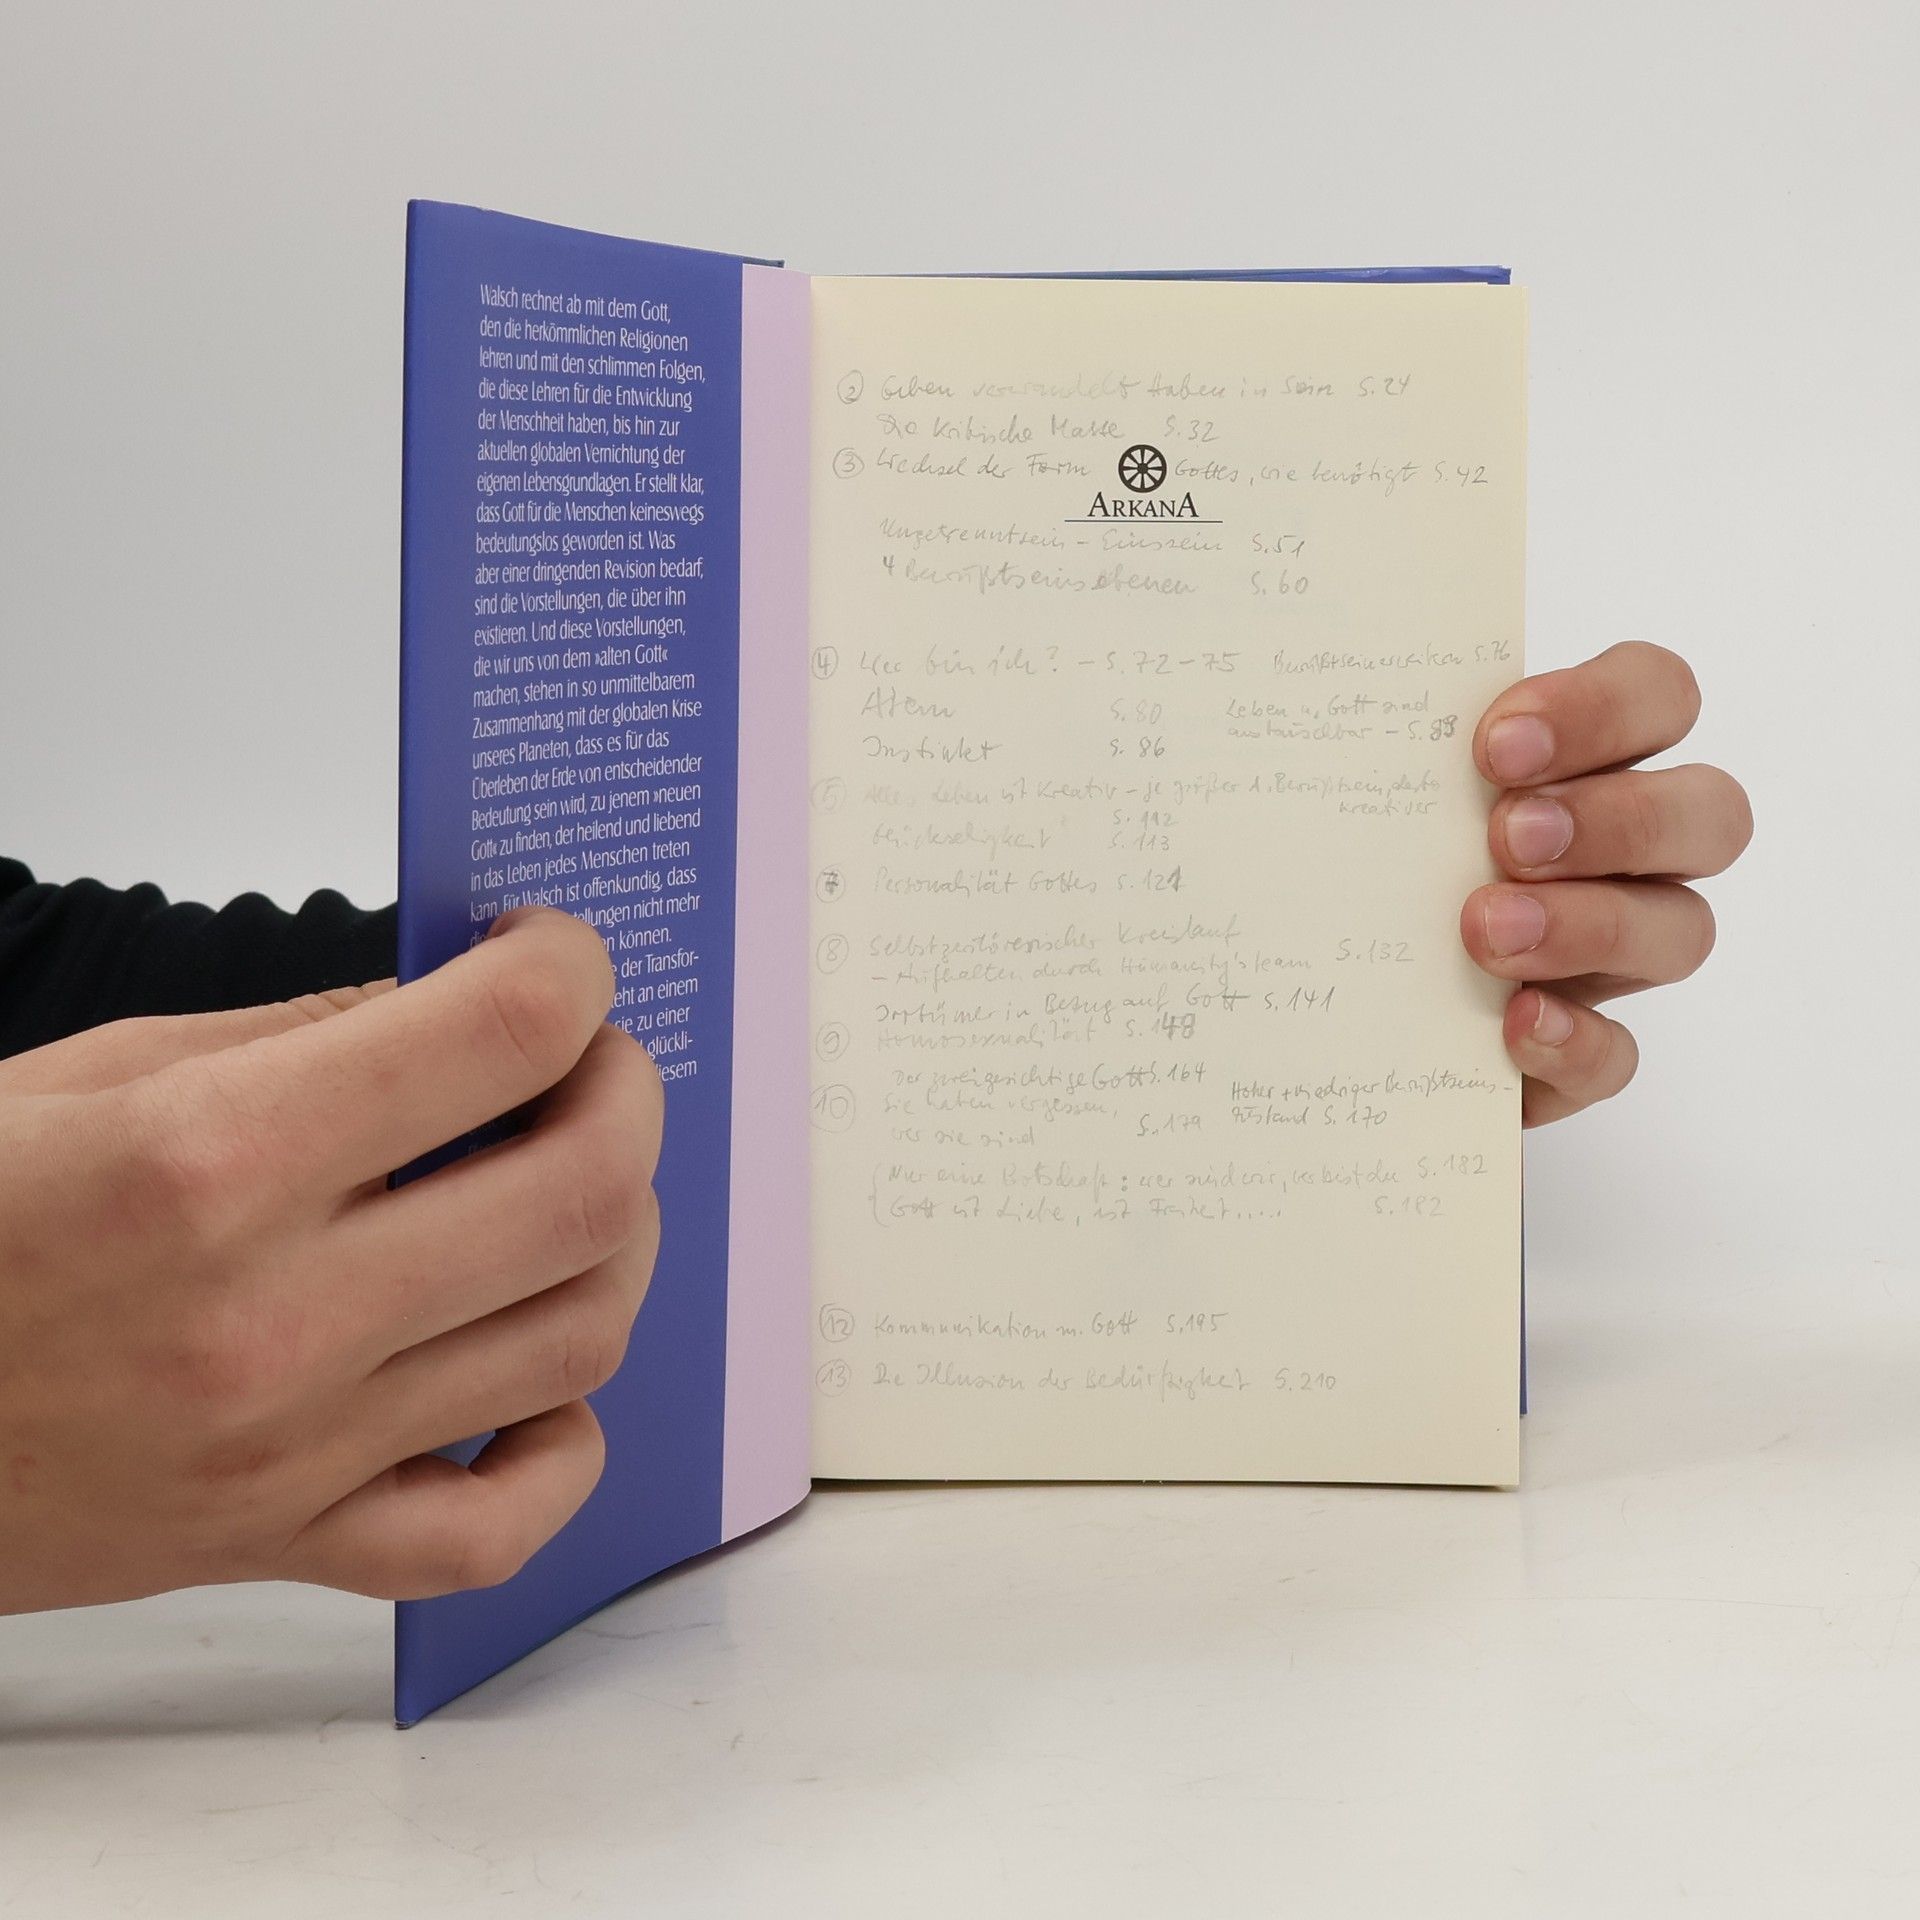 Walsch rechnet ab mit dem Gott,
den die herkömmlichen Religionen
lehren und mit den schlimmen Folgen,
die diese Lehren für die Entwicklung
der Menschheit haben, bis hin zur
aktuellen globalen Vernichtung der
eigenen Lebensgrundlagen. Er stellt klar,
dass Gott für die Menschen keineswegs
bedeutungslos geworden ist. Was
aber einer dringenden Revision bedarf,
sind die Vorstellungen, die über ihn
existieren. Und diese Vorstellungen,
die wir uns von dem »alten Gott«
machen, stehen in so unmittelbarem
Zusammenhang mit der globalen Krise
unseres Planeten, dass es für das
Überleben der Erde von entscheidender
Bedeutung sein wird, zu jenem »neuen
Gott« zu finden, der heilend und liebend
in das Leben jedes Menschen treten
kann. Für Walsch ist offenkundig, dass
tellungen nicht mehr
en können.
e der Transfor-
eht an einem
sie zu einer
glückli-
diesem
② Geben verwandelt Haben in Sein S. 24
Die Kritische Masse S. 32
③ Wechsel der Form Gottes, wie benötigt S. 42
ARKANA
Ungetrenntsein – Einssein S. 51
4 Bewußtseinsebenen S. 60
④ Wer bin ich? – S. 72 – 75 S. 76
Atem S. 80 Leben u. Gott sind
austauschbar – S. 89
Instinkt S. 86
⑤ Alles Leben ist Kreativ – je größer d. Bewußtsein, desto
kreativer
S. 112
Glückseligkeit S. 113
⑦ Personalität Gottes S. 121
⑧ Selbstzerstörerischer Kreislauf
– Aufhalten durch Humanity's team S. 132
Irrtümer in Bezug auf Gott S. 141
⑨ Homosexualität S. 148
Der zweigesichtige Gott S. 164
Hoher + niedriger Bewußtseins-
zustand S. 170
⑩ Sie haben vergessen,
wer sie sind S. 179
Nur eine Botschaft: wer sind wir, wer bist du S. 182
Gott ist Liebe, ist Freiheit..... S. 182
⑫ Kommunikation m. Gott S. 195
⑬ Die Illusion der Bedürftigkeit S. 210